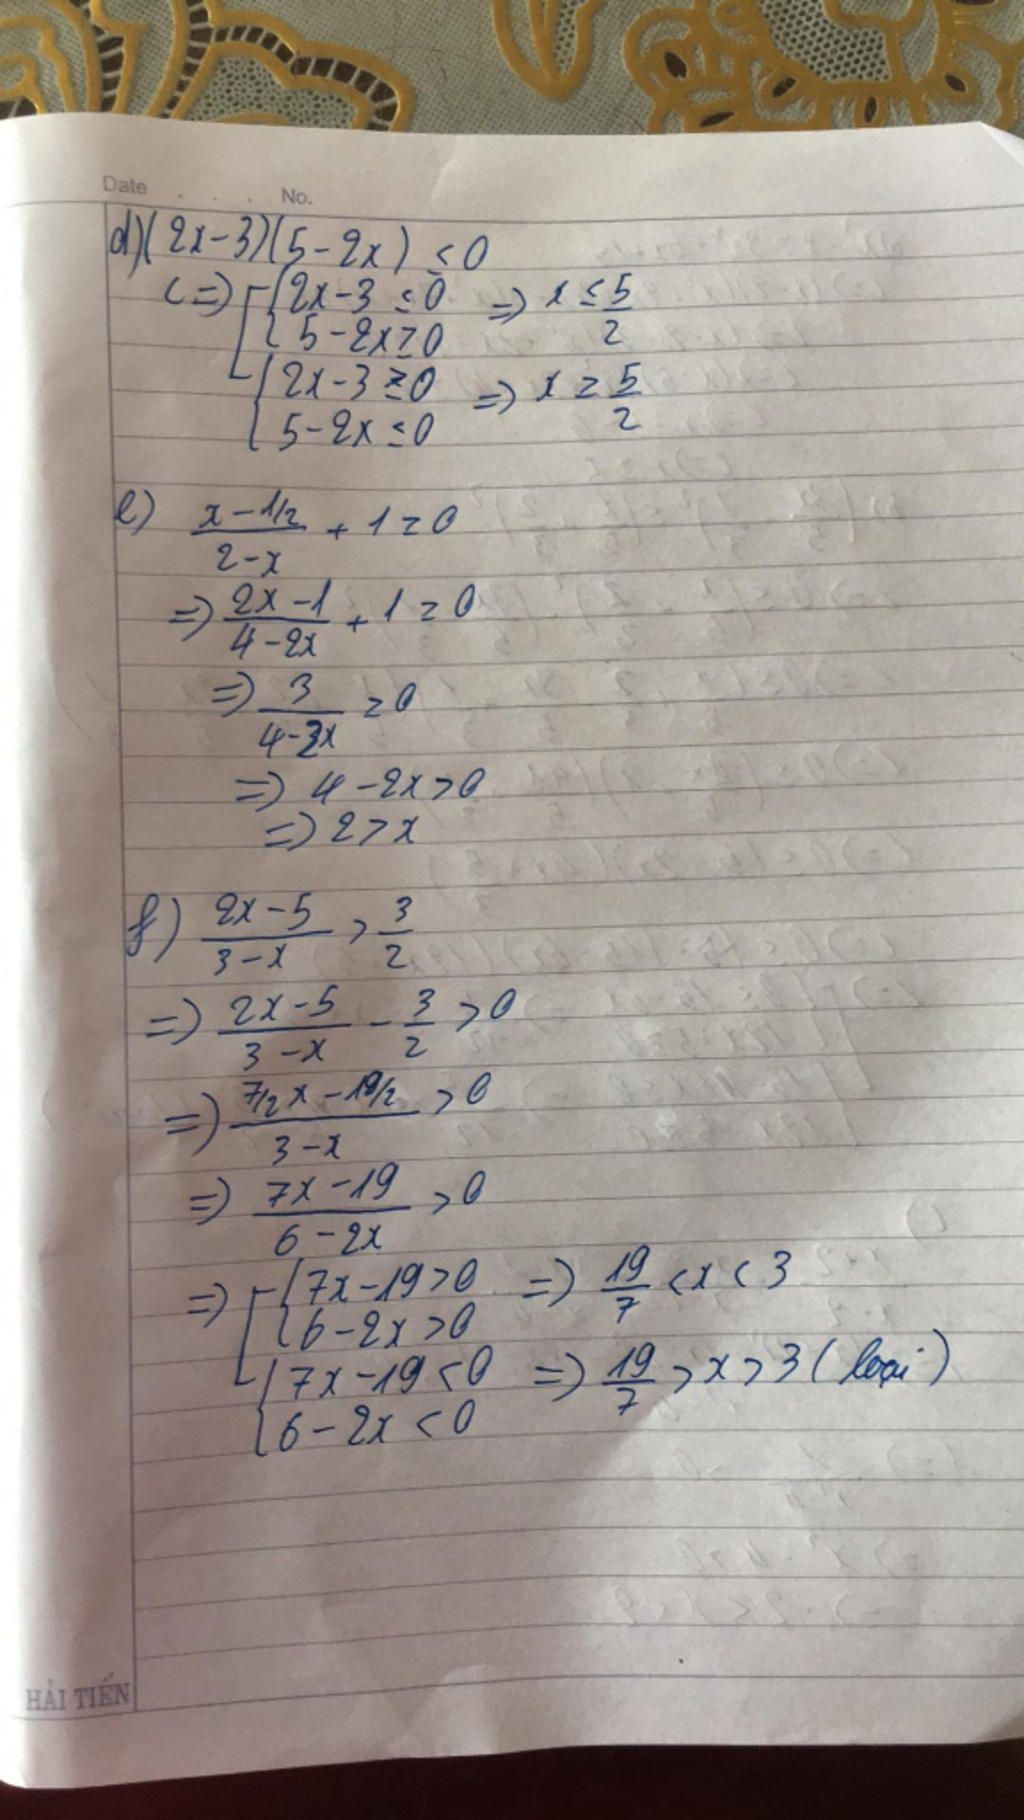 Date . . . . No.
d) (2x-3)(5-2x) ≤ 0
<=> [ { 2x-3 ≤ 0 => x ≤ 5/2
{ 5-2x ≥ 0
{ 2x-3 ≥ 0 => x ≥ 5/2
{ 5-2x ≤ 0
e) (x-1/2)/(2-x) + 1 ≥ 0
=> (2x-1)/(4-2x) + 1 ≥ 0
=> 3/(4-2x) ≥ 0
=> 4-2x > 0
=> 2 > x
f) (2x-5)/(3-x) > 3/2
=> (2x-5)/(3-x) - 3/2 > 0
=> (7/2x-19/2)/(3-x) > 0
=> (7x-19)/(6-2x) > 0
=> [ { 7x-19 > 0 => 19/7 < x < 3
{ 6-2x > 0
{ 7x-19 < 0 => 19/7 > x > 3 (loại)
{ 6-2x < 0
HẢI TIẾN